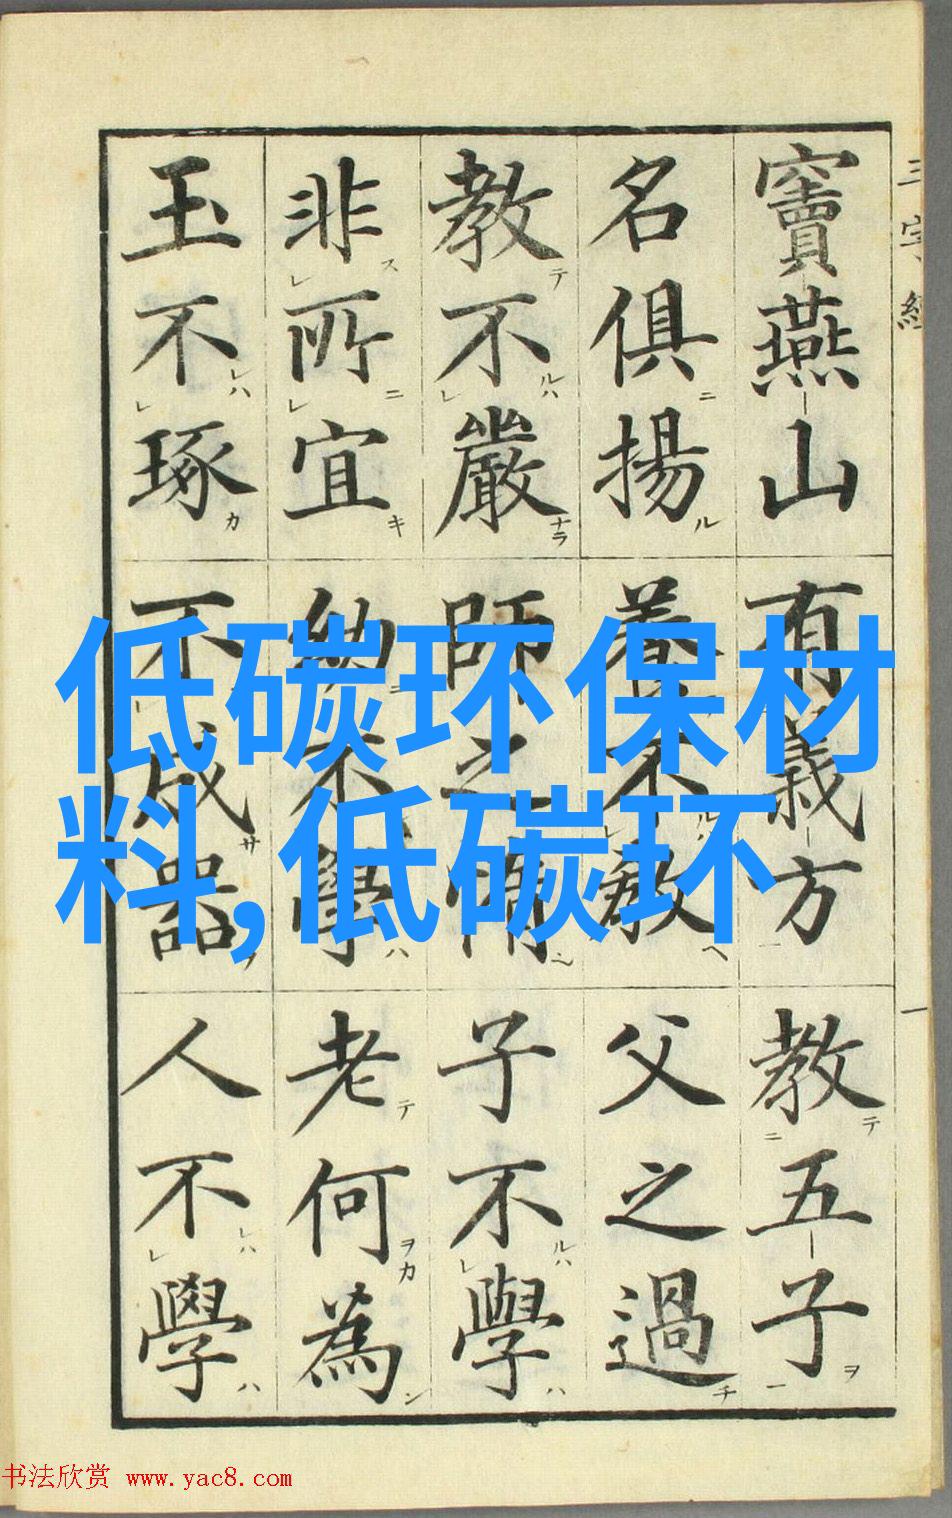 三字經
一
竇燕山有義方教五子
名俱揚養不教父之過
教不嚴師之惰子不學
非所宜幼不學老何為
玉不琢不成器人不學
低碳环保材
料,低碳环
书法欣赏 www.yac8.com